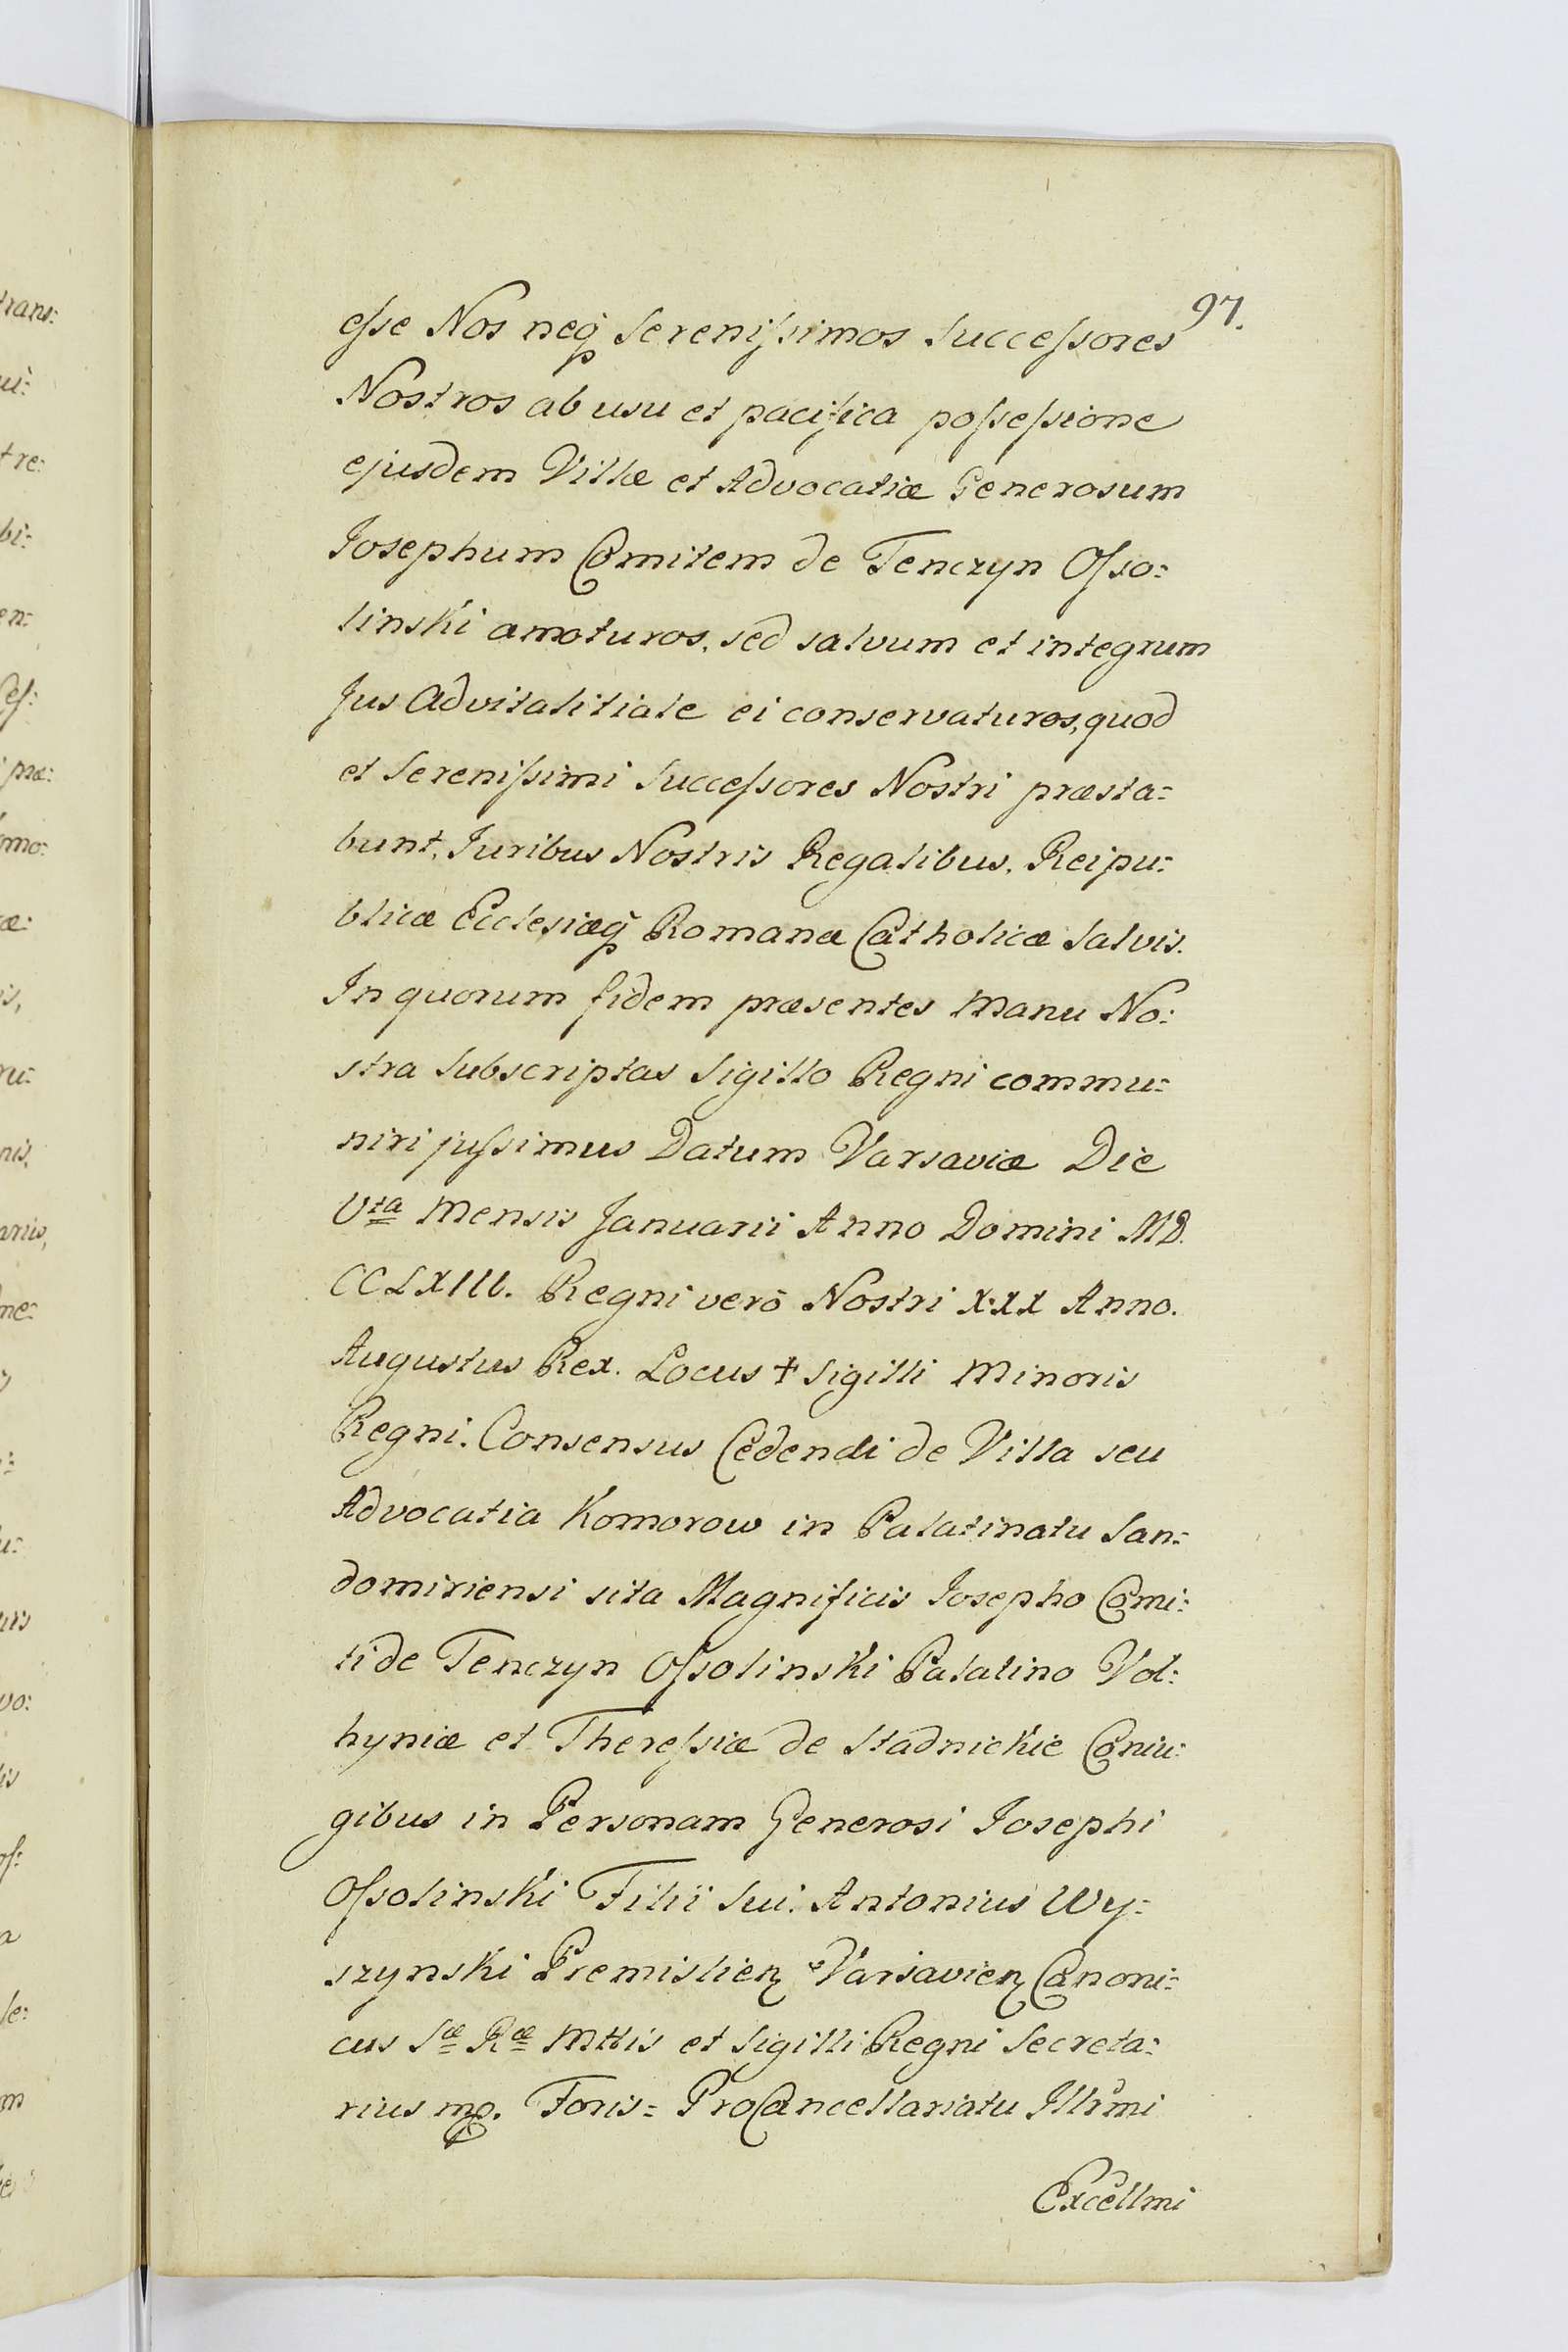 97.
eſse Nos neq̃ Sereniſsimos Succeſsores
Nostros ab usu et pacifica poſseſsione
ejusdem Villæ et Advocatiæ Generosum
Josephum Comitem de Tenczyn Oſso:
linski amoturos, sed salvum et integrum
Jus Advitalitiale ei conservaturos, quod
et Sereniſsimi Succeſsores Nostri præsta:
bunt, Juribus Nostris Regalibus, Reipu:
blicæ Ecclesiæq̃ Romanæ Catholicæ Salvis.
In quorum fidem præsentes Manu No:
stra Subscriptas Sigillo Regni commu:
niri juſsimus Datum Varsaviæ Die
Vta Mensis Januarii Anno Domini MD.
CCLXIII. Regni verò Nostri XXX Anno.
Augustus Rex. Locus + Sigilli Minoris
Regni. Consensus Cedendi de Villa seu
Advocatia Komorow in Palatinatu San:
domiriensi sita Magnificis Josepho Comi:
ti de Tenczyn Oſsolinski Palatino Vol:
hyniæ et Thereſsiæ de Stadnickie Coniu:
gibus in Personam Generosi Josephi
Oſsolinski Filii Sui. Antonius Wy:
szynski Premislien̨ Varsavien̨ Canoni:
cus Sæ Ræ Mttis et Sigilli Regni Secreta:
rius mp. Foris: ProCancellariatu Illr̃mi
Excel̃lmi